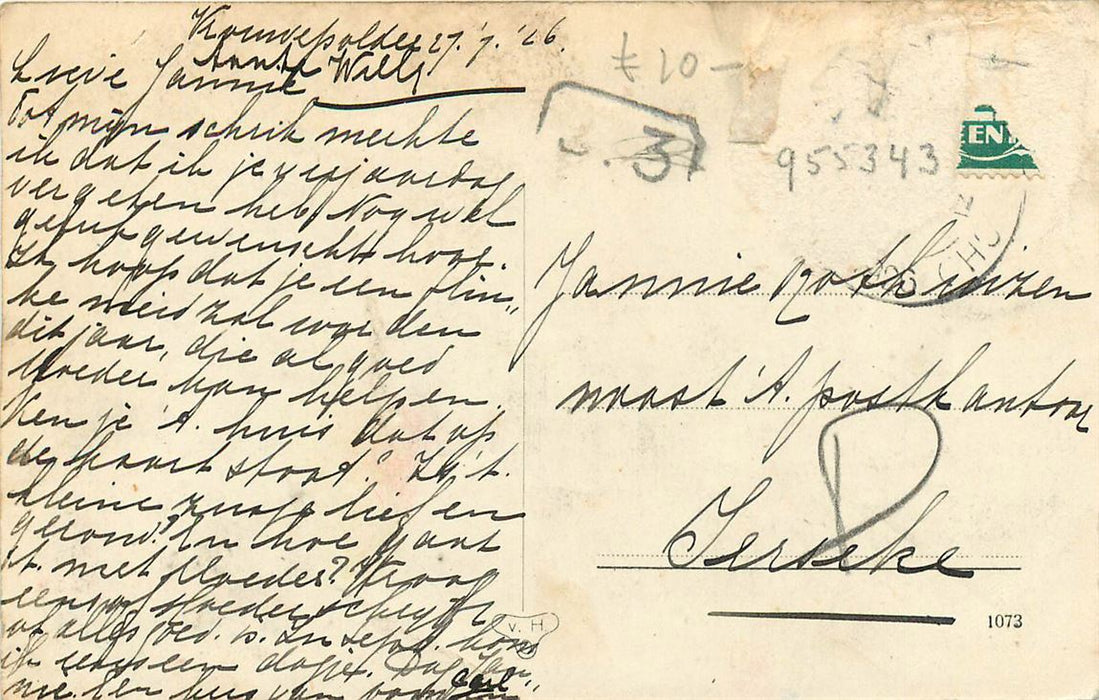 27.7.'26.
Tante Willy
Lieve Jannie
Tot mijn schrik merkte
ik dat ik je verjaardag
vergeten heb. Nog wel
gefeliciteerd hoor.
Ik hoop dat je een flin„
ke meid zal worden
dit jaar, die al goed
Moeder kan helpen.
Ken je 't huis dat op
de kaart staat? Is 't
kleine zusje lief en
gezond? En hoe gaat
't met Moeder? Vraag
eens of Moeder schrijft
of alles goed is. In Sept. kom
ik eens een dagje. Dag Jan„
nie. Een kus van
₤ 10 -
3
955343
CENT
Jannie Rothuizen
naast 't postkantoor
Ierseke
V. H
1073